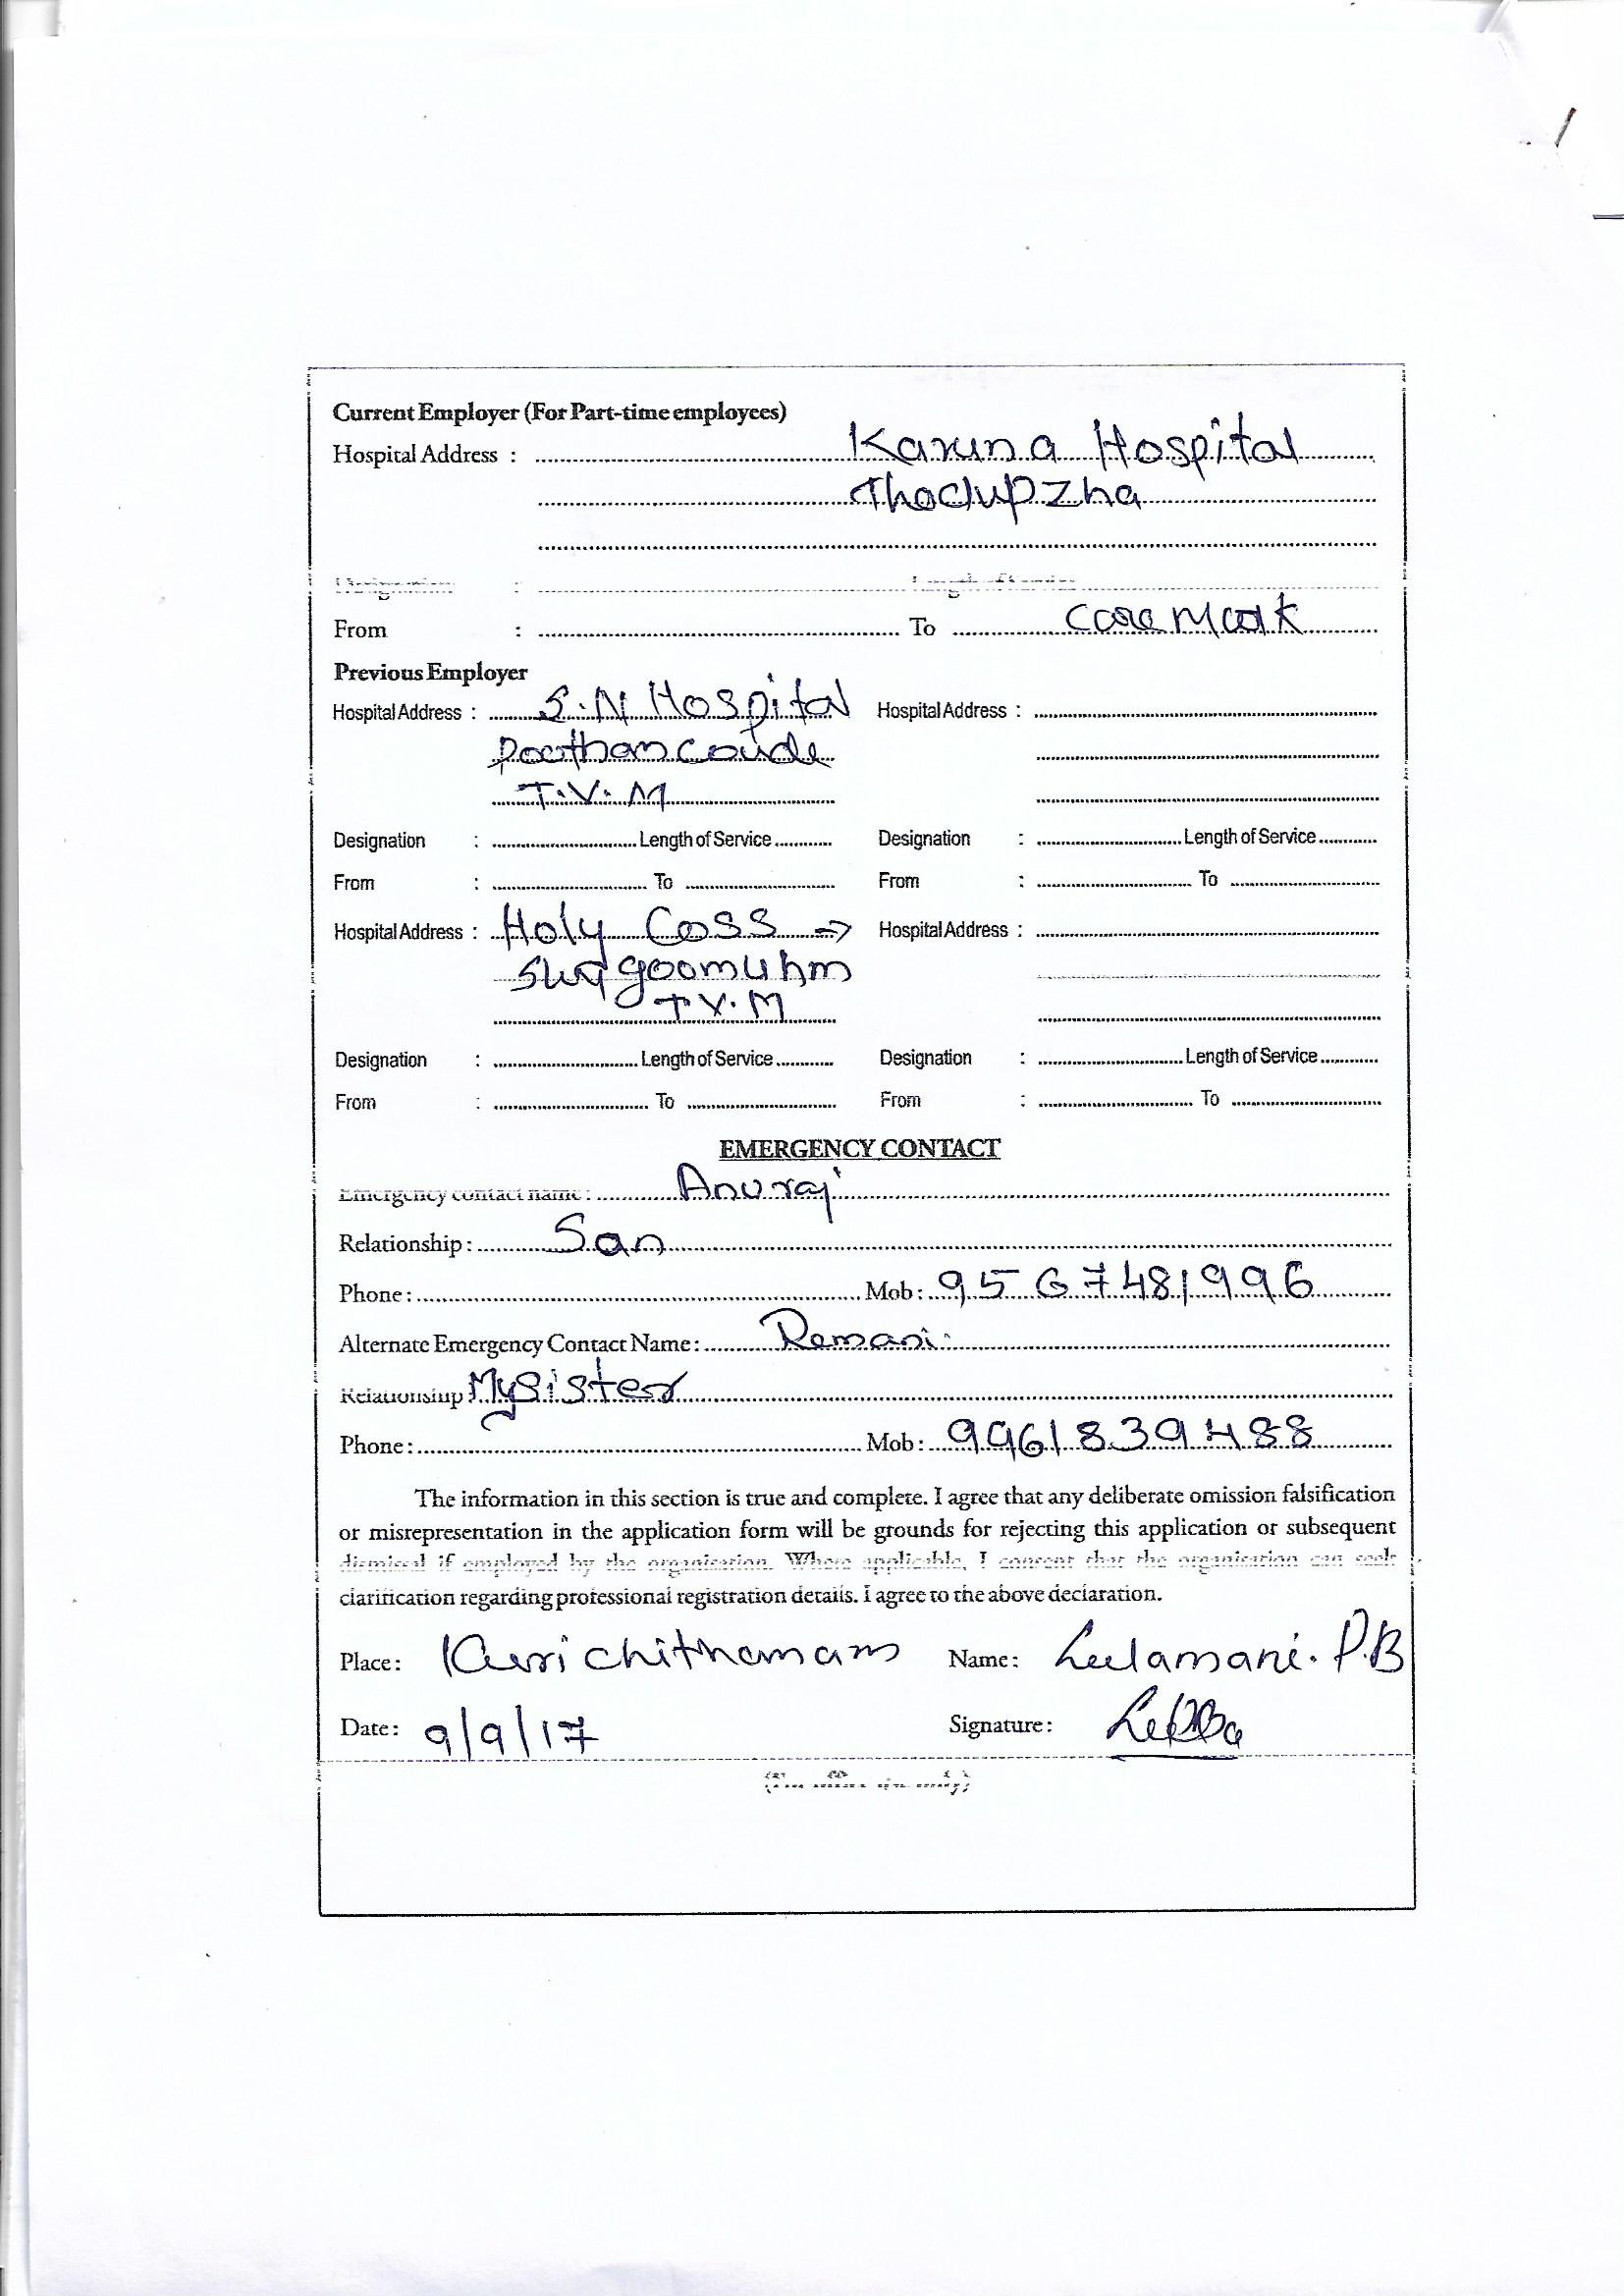 Current Employer (For Part-time employees)
Hospital Address : Karuna Hospital
Thodupzha
Designation : Length of Service
From : To Care Mark
Previous Employer
Hospital Address : S.N Hospital Hospital Address :
Poothancoude
T.V.M
Designation : Length of Service Designation : Length of Service
From : To From : To
Hospital Address : Holy Coss → Hospital Address :
T.V.M
Designation : Length of Service Designation : Length of Service
From : To From : To
EMERGENCY CONTACT
Emergency contact name : Anuraj
Relationship : San
Phone : Mob : 9567481996
Alternate Emergency Contact Name : Remani
Relationship My Sister
Phone : Mob : 9961839488
The information in this section is true and complete. I agree that any deliberate omission falsification
or misrepresentation in the application form will be grounds for rejecting this application or subsequent
dismissal if employed by the organisation. Where applicable, I consent that the organisation can seek
clarification regarding professional registration details. I agree to the above declaration.
Place : Kurichithanam Name : Leelamani. P.B
Date : 9/9/17 Signature :
(For office use only)